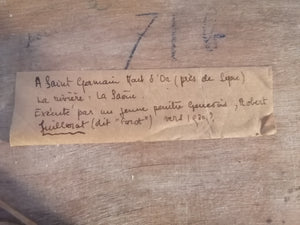 716
A Saint Germain Mont d'Or (près de Lyon)
La rivière : La Saône.
Exécuté par un jeune peintre Genevois, Robert
Guillorat (dit "Forot") vers